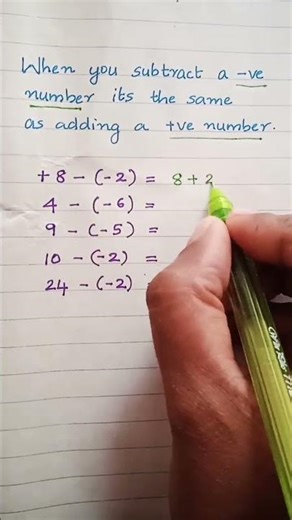 When you subtract a -ve
number its the same
as adding a +ve number.
+8 - (-2) = 8 + 2
4 - (-6) =
9 - (-5) =
10 - (-2) =
24 - (-2)